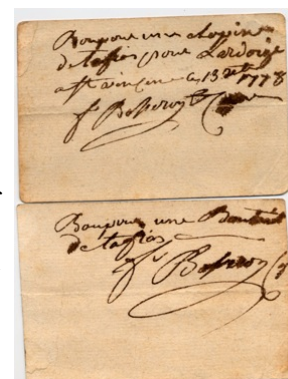 Bon pour une chopine
de taffias pour Lardoize
a St vincennes 13 1778
fr Bosseron
Bon pour une Bouteille
de taffias
fr Bosseron